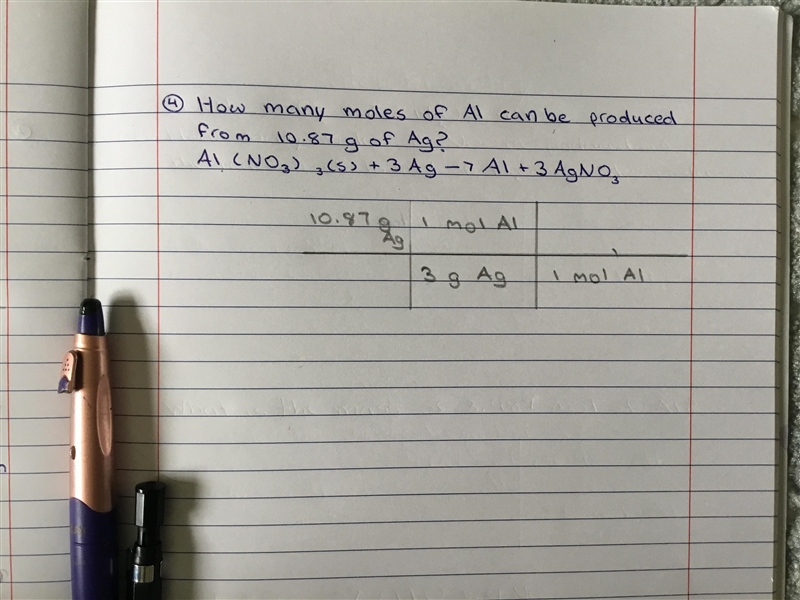 ④ How many moles of Al can be produced
from 10.87 g of Ag?
Al (NO₃) ₃(s) + 3 Ag → Al + 3 AgNO₃
10.87 g Ag | 1 mol Al |
3 g Ag | 1 mol Al